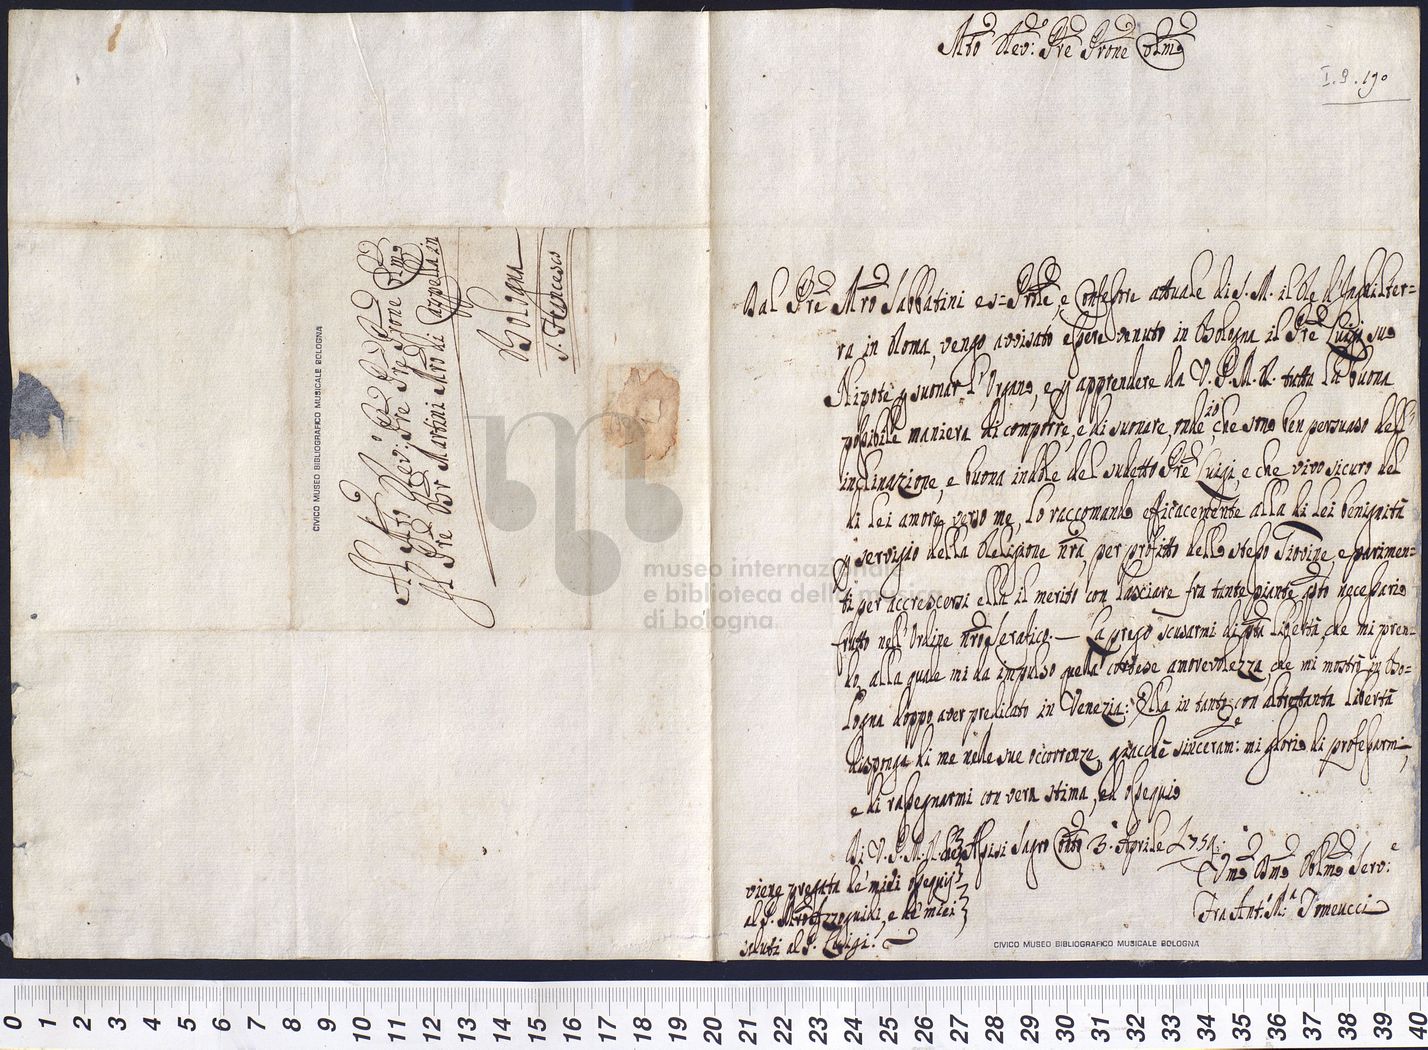 Mto Rev: Pre Prone Colmo
I.3.190
Dal Pre Mro Sabbatini es=Prole, e Confessre attuale di S. M. il Re d'Inghilter=
ra in Roma, vengo avvisato essere venuto in Bologna il Pre Luigi suo
Nipote p suonar l'Organo, e p apprendere da V. P. M. R. tutta la buona
possibile maniera di comporre, e di suonare, ond'io, che sono ben persuaso dell'
inclinazione, e buona indole del sudetto Pre Luigi, e che vivo sicuro del
di lei amore verso me, lo raccomando efficacemente alla di lei benignità
p servigio della Religione nra, per profitto dello stesso Giovine, e parimen=
ti per accrescersi ella il merito con lasciare fra tante piante qsto necessario
frutto nell'Ordine nro Serafico. — La prego scusarmi di qsta libertà, che mi pren=
do, alla quale mi da impulso quella cortese amorevolezza, che mi mostrò in Bo=
logna doppo aver predicato in Venezia: Ella in tanto con altrettanta libertà
disponga di me nelle sue occorrenze, giacchè sinceram:e mi glorio di professarmi,
e di rassegnarmi con vera stima, ed ossequio
Di V. P. M. R. Assisi Sagro Conto 3. Aprile 1759.
viene pregata de' miei ossequj
al P. Mro, e de' miei
saluti al P. Luigi.
Umo Dmo Oblmo Serv:e
Fra Ant.o M.a Tomeucci
Al Mto Rev: Pre Pre Prone Colmo
Il Pre Mro Martini Mro di Cappella in
Bologna
S. Francesco
CIVICO MUSEO BIBLIOGRAFICO MUSICALE BOLOGNA
CIVICO MUSEO BIBLIOGRAFICO MUSICALE BOLOGNA
museo internazionale
e biblioteca della musica
di bologna
0 1 2 3 4 5 6 7 8 9 10 11 12 13 14 15 16 17 18 19 20 21 22 23 24 25 26 27 28 29 30 31 32 33 34 35 36 37 38 39 40